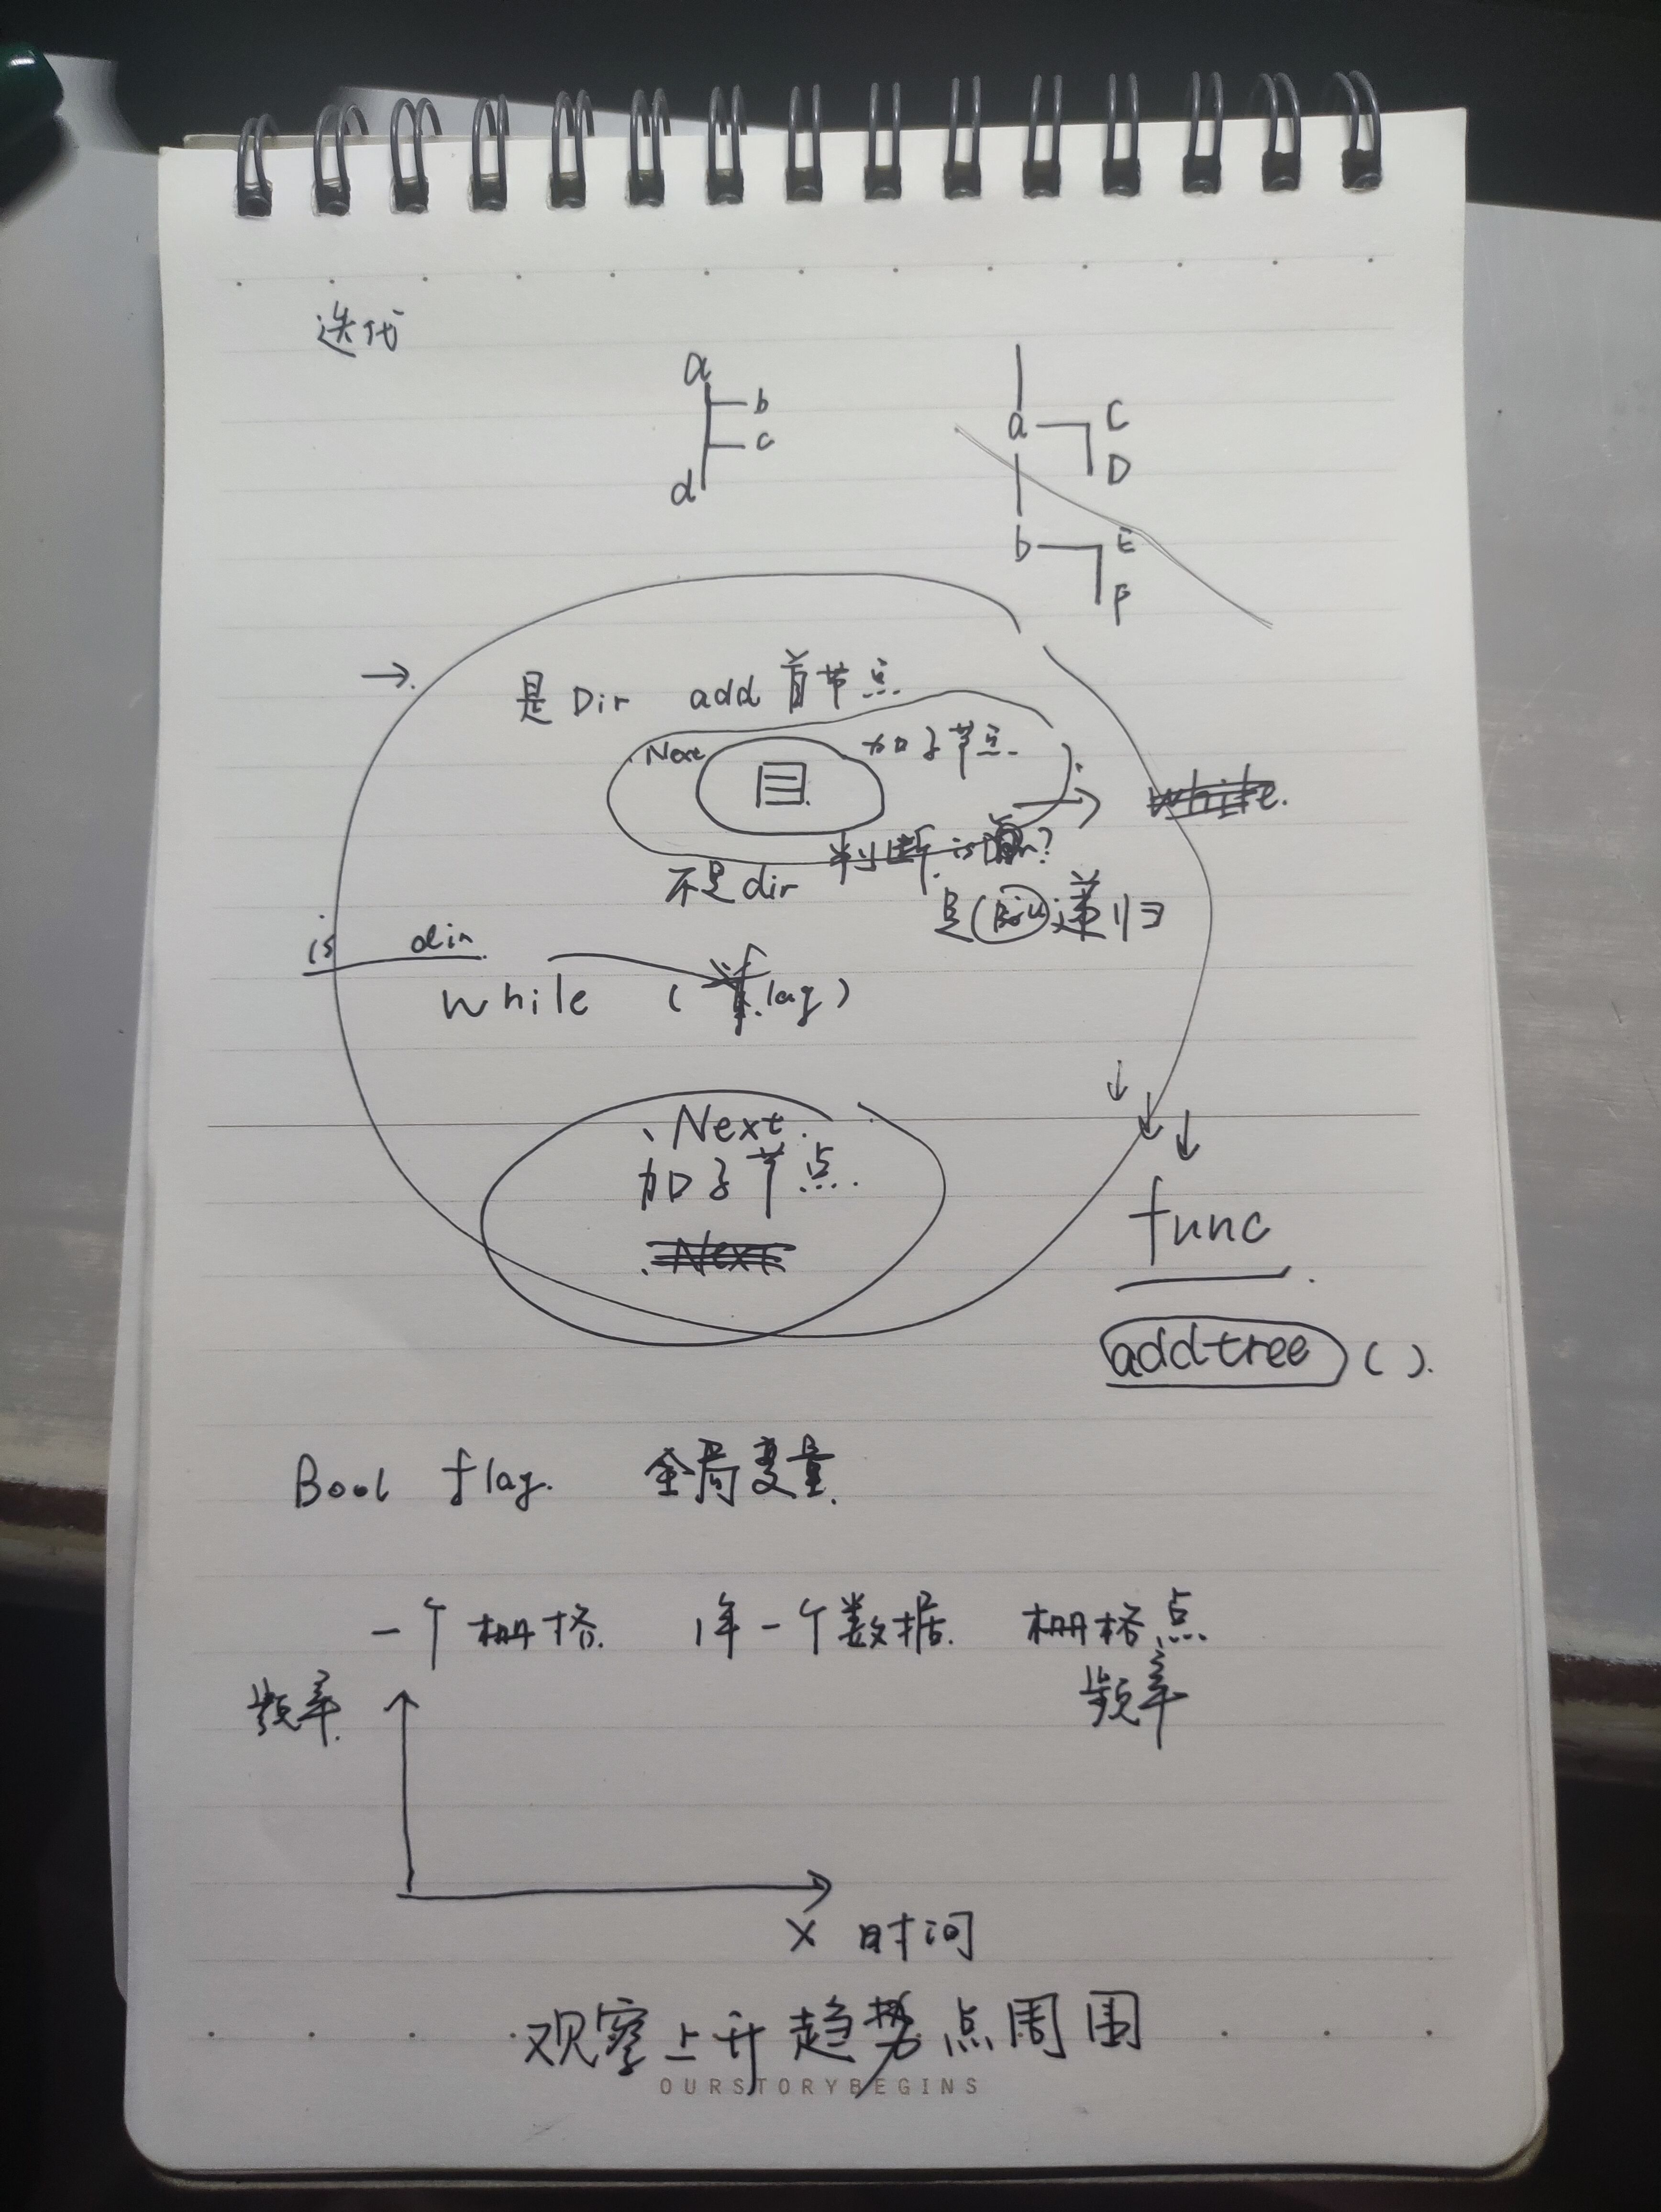 迭代
a
b
c
d
a C
D
b E
F
是Dir add 首节点
Next 加子节点.
目
while.
判断 is Dir?
不是dir
是 递归
is dir
while (flag)
Next.
加子节点.
Next
func
addtree ( ).
Bool flag. 全局变量.
一个栅格. 1年一个数据. 栅格点
频率
频率.
X 时间
观察上升趋势点周围
OURSTORYBEGINS